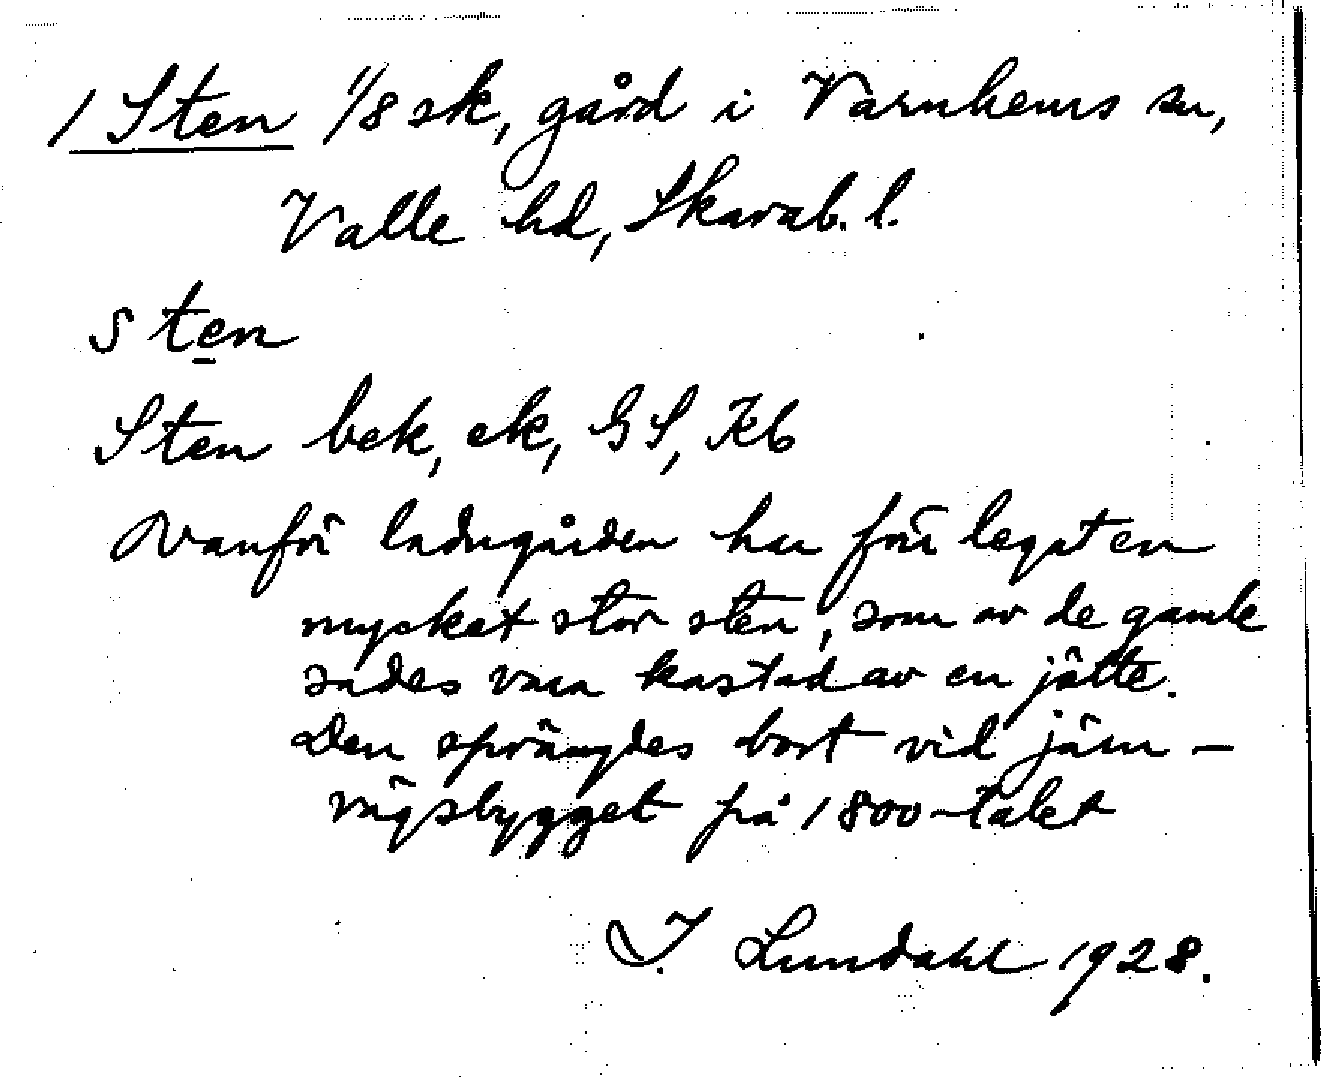 1 Sten 1/8 sk, gård i Varnhems sn,
Valle hd, Skarab. l.
sten
Sten bek, ek, GS, Kb
Ovanför ladugården har förr legat en
mycket stor sten, som av de gamle
sades vara kastad av en jätte.
Den sprängdes bort vid järn-
vägsbygget på 1800-talet
I. Lundahl 1928.